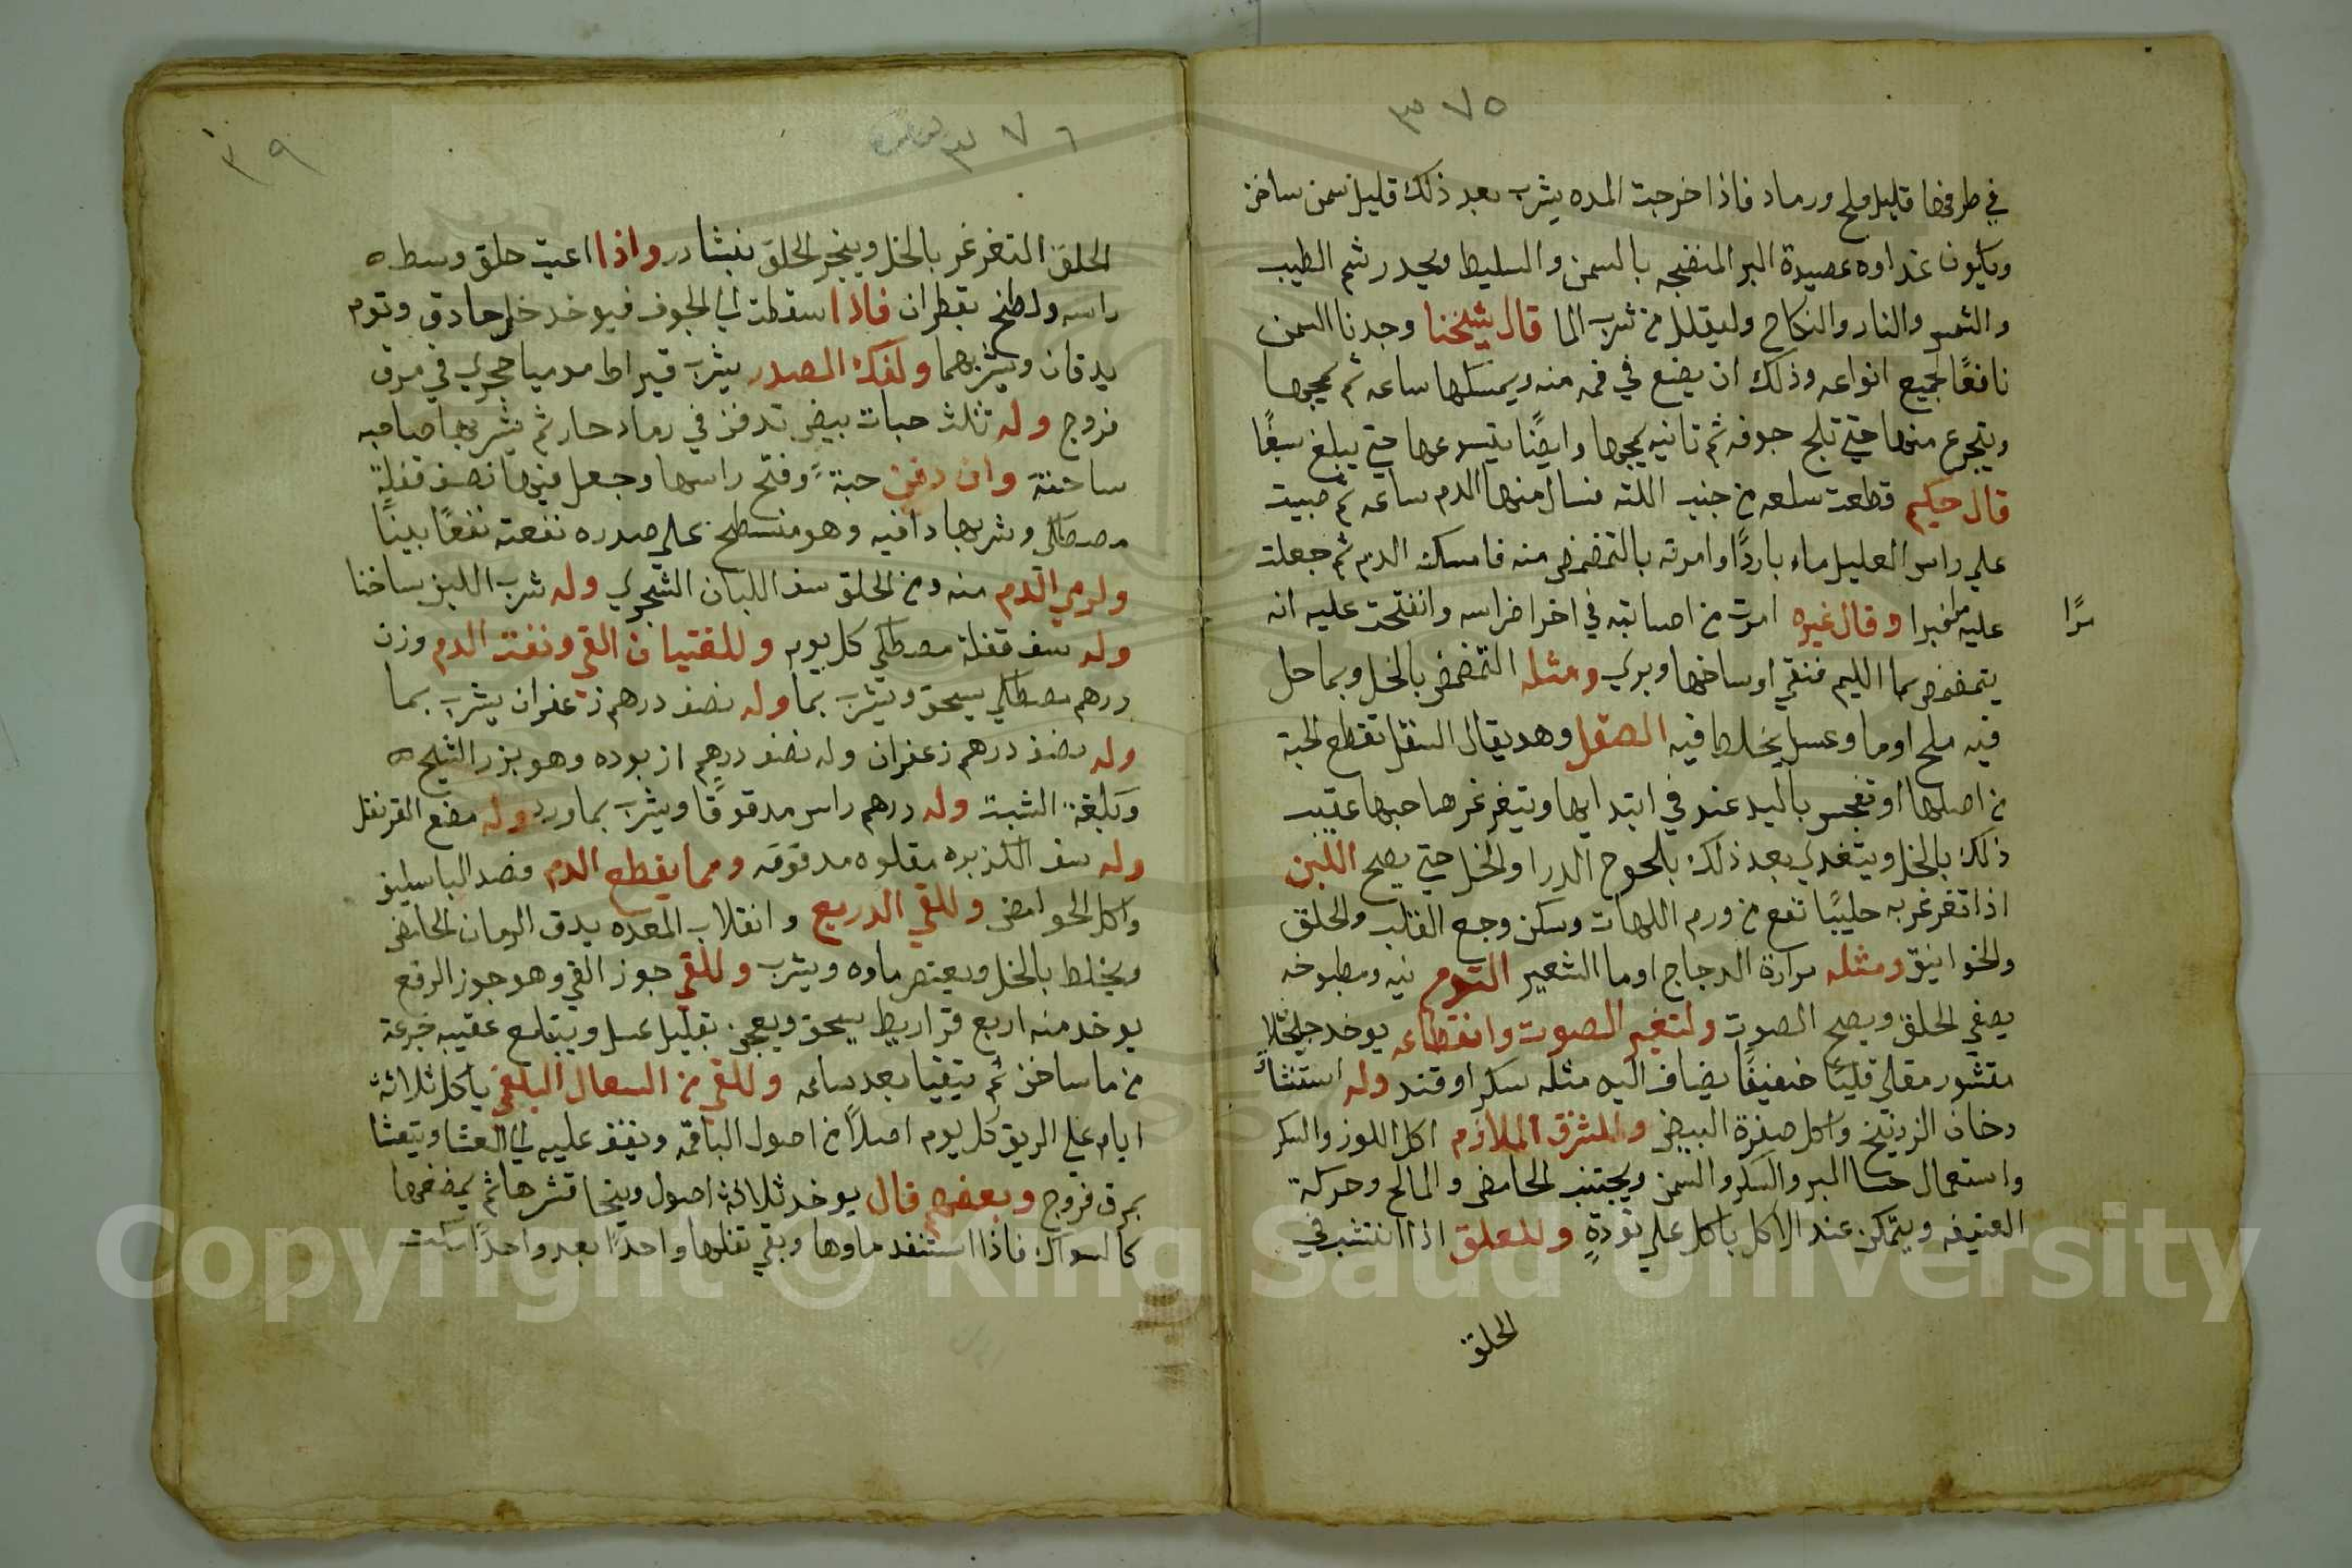 ٣٧٥
في طرفها قليل ملح ورماد فاذا خرجت المده يشرب بعد ذلك قليل سمن ساخن
ويكون غداوه عصيدة البر المنضجه بالسمن والسليط ويحدر شم الطيب
والشمس والنار والنكاح وليقلل من شرب الما قال شيخنا وجدنا السمن
نافعًا لجميع انواعه وذلك ان يضع في فمه منه ويمسكها ساعه ثم يمجها
ويتجرع منها حتي تلج جوفه ثم ثانيه يمجها وايضًا يتسوعها حتي يبلغ سبعًا
قال حكيم قطعت سلعه من جنب اللثه فسال منها الدم ساعه ثم صبيت
علي راس العليل ماء باردًا وامرته بالتمضمض منه فامسك الدم ثم جعلت
عليه فبرا وقال غيره امرت من اصابته في اخر اضراسه وانفتحت عليه انه
مرًا
يتمضمض بما الليم فنقي اوساخها وبري ومثله التمضمض بالخل وبما حل
فيه ملح او ما وعسل يخلط فيه الصقل وهد يقال النقل تقطع لحبة
من اصلها او تفجس باليد عند في ابتدايها ويتغرغر صاحبها عقيب
ذلك بالخل ويتغدي بعد ذلك بلحوح الدرا والخل حتي يصح اللبن
اذا تغرغر به حليبًا نفع من ورم اللهات وسكن وجع القلب والحلق
والخوانيق ومثله مرارة الدجاج او ما الشعير الثوم نيه ومطبوخه
يصفي الحلق ويصح الصوت ولتغير الصوت وانقطاعه يوخد جلجلان
مقشور مقلي قليًا خفيفًا يضاف اليه مثله سكر او قند وله استنشا
دخان الزرنيخ واكل صفرة البيض وللشرق الملازم اكل اللوز والسكر
واستعمال حسا البر والسكر والسمن ويجتنب الحامض والمالح وحركة
العنيفه ويتمكن عند الاكل ياكل علي تودةٍ وللعلق اذا انتشب في
الحلق
٣٧٦
٣٩
الحلق التغرغر بالخل وينجر الحلق بنشادر واذا اعيت حلق وسط
راسه ولطخ بقطران فاذا سقطت الي الجوف فيوخد خل حادق وتوم
يدقان ويشربهما ولفك الصدر يشرب قيراط موميا حجري في مرق
فروج وله ثلث حبات بيض تدفن في رماد حار ثم يشربها صاحبه
ساخنة وان دفن حبة وفتح راسها وجعل فيها نصف قفلة
مصطكي وشربها دافيه وهو منسطح علي صدره نفعته نفعًا بينًا
ولرمي الدم منه ومن الحلق سف اللبان الشجري وله شرب اللبن ساخنا
وله سف قفلة مصطكي كل يوم وللغثيان القي ونفث الدم وزن
درهم مصطكي يسحق ويشرب بما وله نصف درهم زعفران يشرب بما
وله نصف درهم زعفران وله نصف درهم ازبوده وهو بزر الشيح
وبلغة الشبث وله درهم راس مدقوقًا ويشرب بماورد وله مضغ القرنفل
وله سف الكزبره مقلوه مدقوقه ومما يقطع الدم فصد الباسليق
واكل الحوامض وللقي الدريع وانقلاب المعده يدق الرمان الحامض
ويخلط بالخل ويعتصر ماوه ويشرب وللقي جوز القي وهو جوز الرقع
يوخد منه اربع قراريط يسحق ويعجن بقليل عسل ويبتلع عقيبه جرعة
من ما ساخن ثم يتقيا بعد ساعه وللقي من السعال البلغمي ياكل ثلاثة
ايام علي الريق كل يوم اصلاً من اصول الباقمّه ويقف عليه الي العشا ويتعشا
بمرق فروج وبعضهم قال يوخد ثلاثة اصول وينحا قشرها ثم يمضغها
كالسواك فاذا استنفد ماوها وبقي تفلها واحدًا بعد واحدًا سكت
Copyright © King Saud University